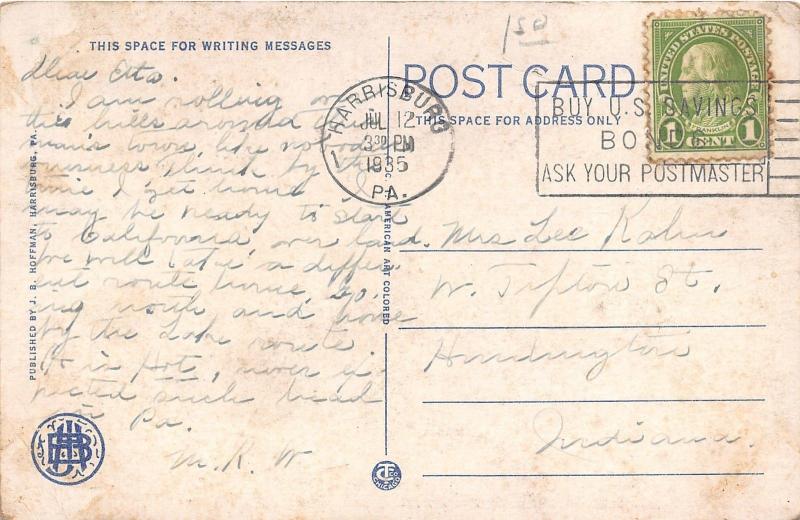 THIS SPACE FOR WRITING MESSAGES
Dear Etta.
I am rolling over
the hills around this
man's town, like nobodies
business. Think by the
time I get home I
may be ready to start
to California, over land.
We will take a differ-
ent route home, go-
ing north and home
by the Lake route
is Hot, never ex-
pected such head
in Pa.
M. R. W
1 50
POST CARD
THIS SPACE FOR ADDRESS ONLY
HARRISBURG
JUL 12
3 30 PM
1935
PA.
BUY U.S. SAVINGS
BON
ASK YOUR POSTMASTER
UNITED STATES POSTAGE
FRANKLIN
1 CENT 1
Mrs Lee Kahn
W. Tipton St.
Huntington
Indiana.
PUBLISHED BY J. B. HOFFMAN, HARRISBURG, PA.
AMERICAN ART COLORED
CT CO
CHICAGO